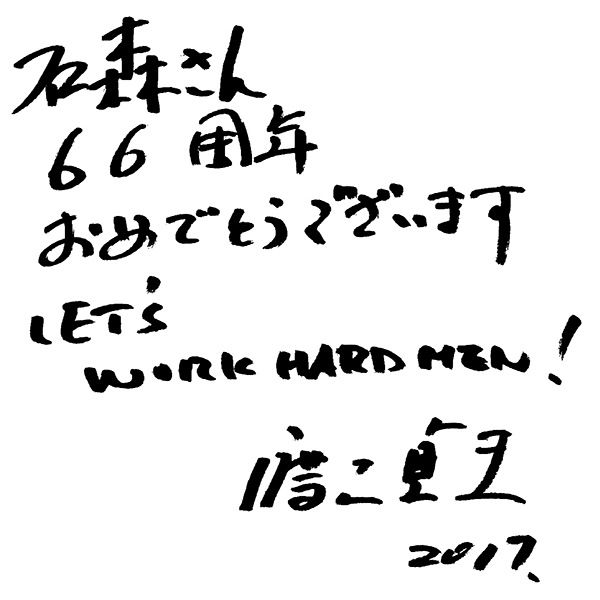 石森さん
66周年
おめでとうございます
LET'S
WORK HARD MEN!
2017.